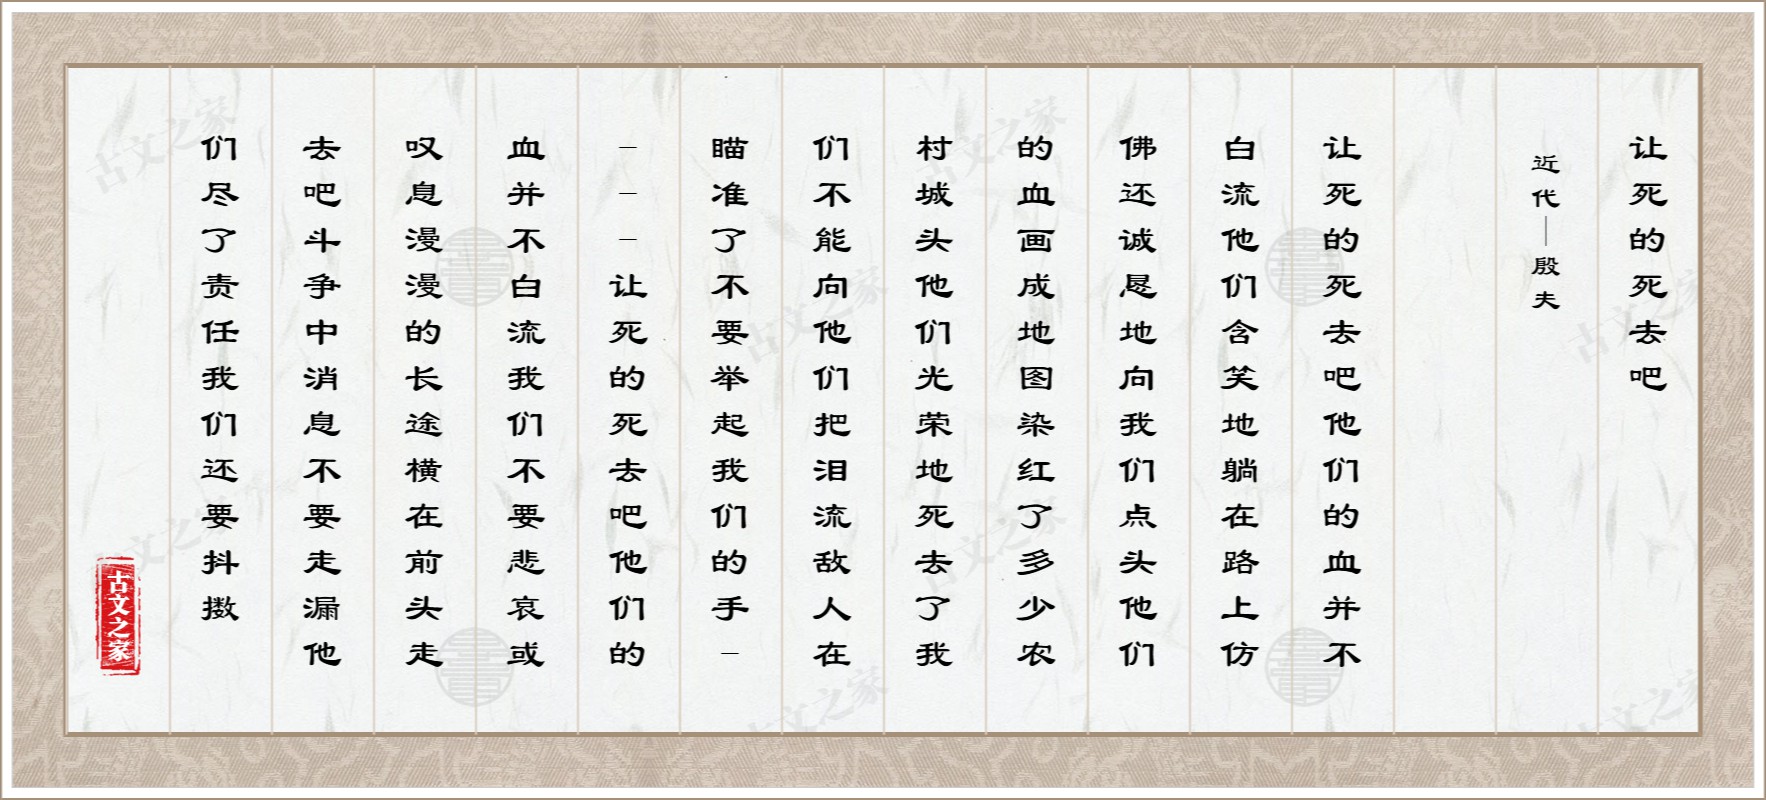 让死的死去吧
近代—殷夫
让死的死去吧他们的血并不
白流他们含笑地躺在路上仿
佛还诚恳地向我们点头他们
的血画成地图染红了多少农
村城头他们光荣地死去了我
们不能向他们把泪流敌人在
瞄准了不要举起我们的手—
———让死的死去吧他们的
血并不白流我们不要悲哀或
叹息漫漫的长途横在前头走
去吧斗争中消息不要走漏他
们尽了责任我们还要抖擞
古文之家